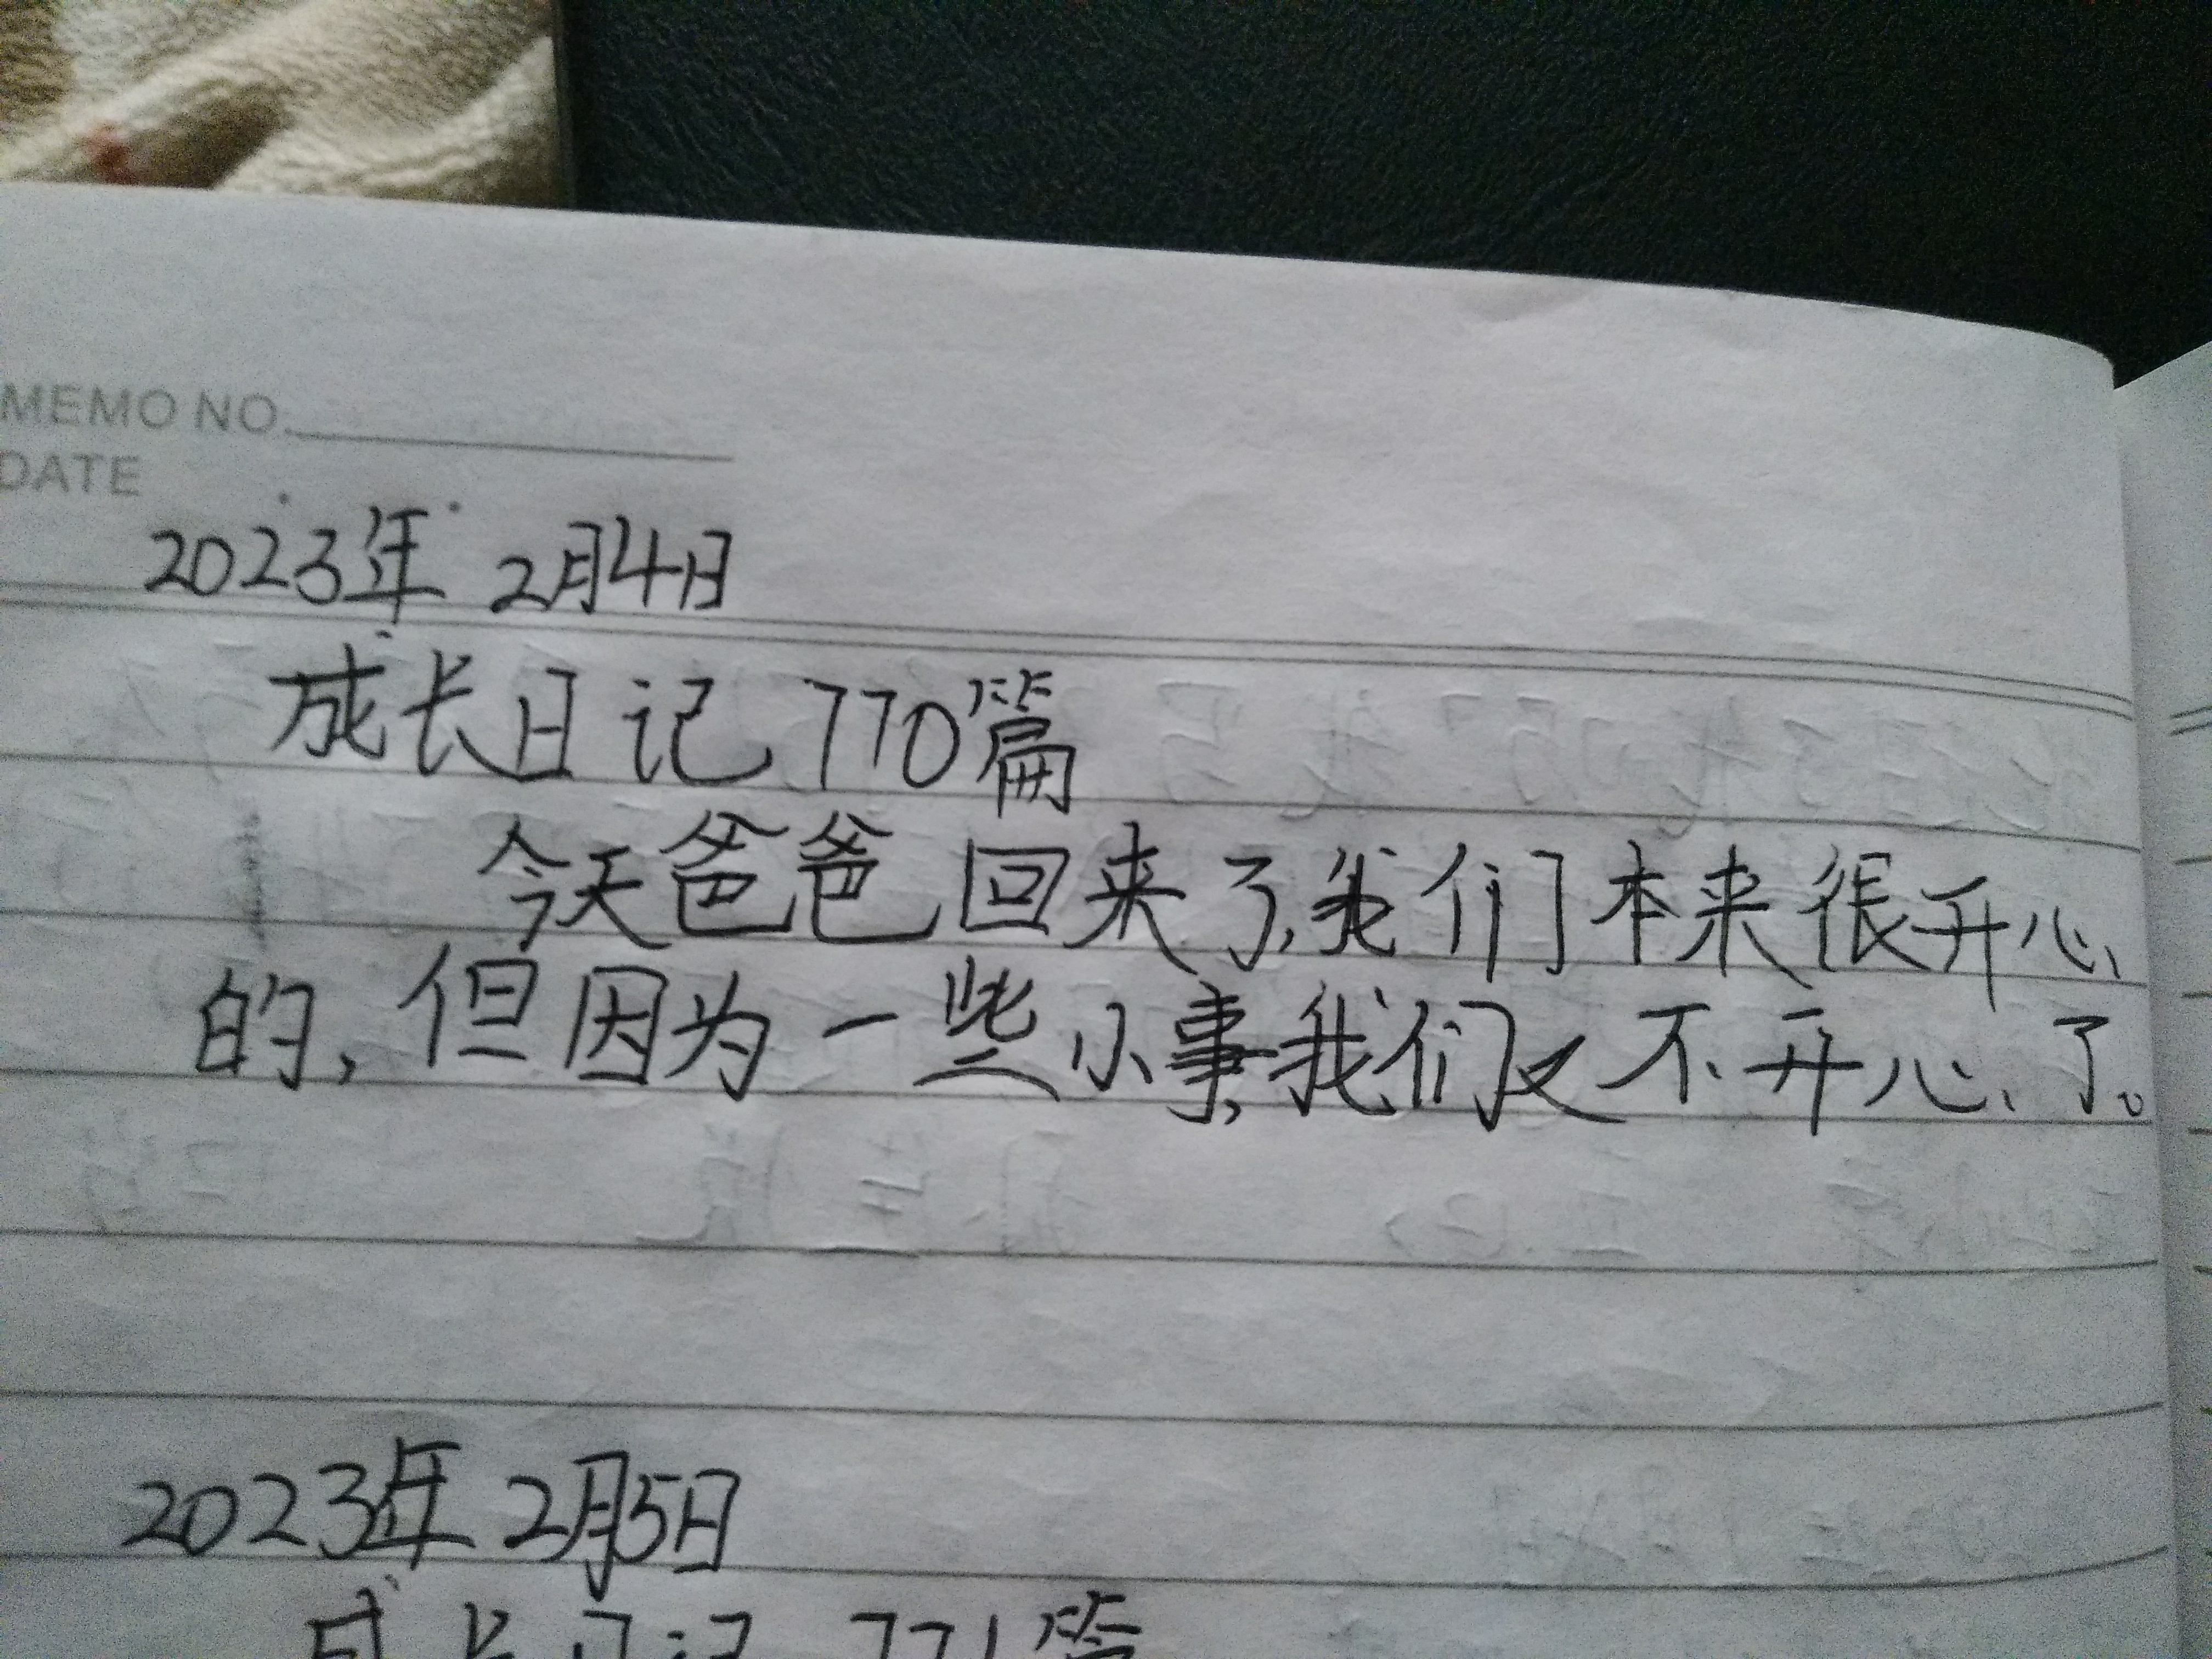 MEMO NO.
DATE
2023年 2月4日
成长日记 770篇
今天爸爸回来了,我们本来很开心
的,但因为一些小事,我们又不开心了。
2023年 2月5日
成长日记 771篇